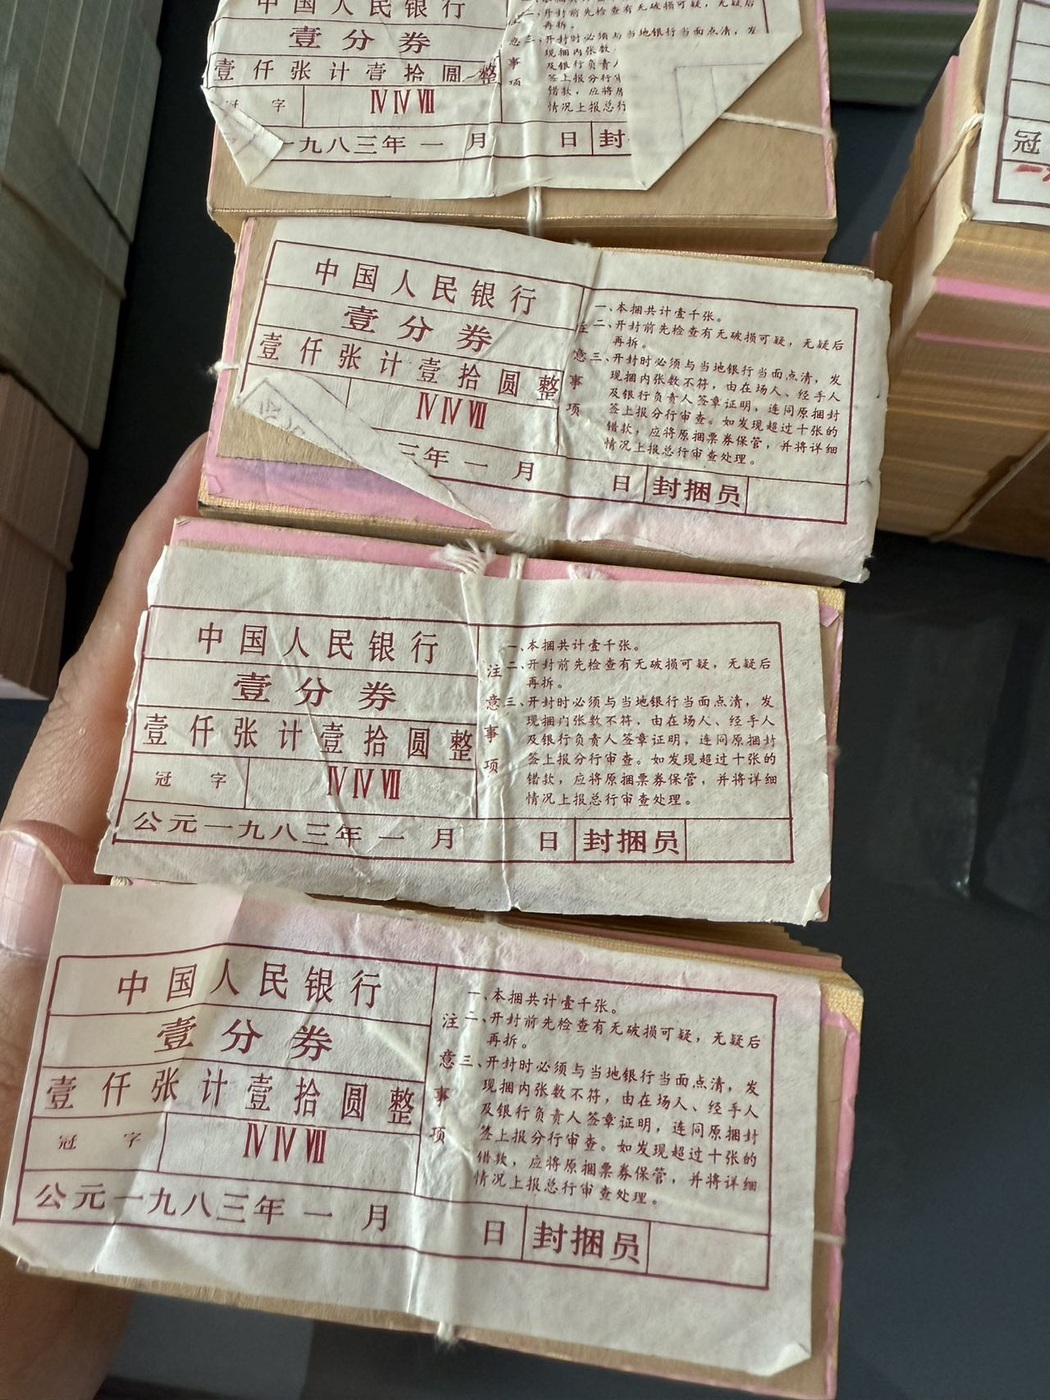 中国人民银行
壹分券
壹仟张计壹拾圆整
冠字 ⅣⅣⅦ
一九八三年一月 日 封
再拆。
意三、开封时必须与当地银行当面点清，发
事 现捆内张数
项 及银行负责人
签上报分行审
错款，应将原
情况上报总行
中国人民银行
壹分券
壹仟张计壹拾圆整
ⅣⅣⅦ
三年一月 日 封捆员
一、本捆共计壹千张。
注二、开封前先检查有无破损可疑，无疑后
再拆。
意三、开封时必须与当地银行当面点清，发
现捆内张数不符，由在场人、经手人
事 及银行负责人签章证明，连同原捆封
项 签上报分行审查。如发现超过十张的
错款，应将原捆票券保管，并将详细
情况上报总行审查处理。
中国人民银行
壹分券
壹仟张计壹拾圆整
冠字 ⅣⅣⅦ
公元一九八三年一月 日 封捆员
一、本捆共计壹千张。
注二、开封前先检查有无破损可疑，无疑后
再拆。
意三、开封时必须与当地银行当面点清，发
现捆内张数不符，由在场人、经手人
事 及银行负责人签章证明，连同原捆封
签上报分行审查。如发现超过十张的
项 错款，应将原捆票券保管，并将详细
情况上报总行审查处理。
中国人民银行
壹分券
壹仟张计壹拾圆整
冠字 ⅣⅣⅦ
公元一九八三年一月 日 封捆员
一、本捆共计壹千张。
注二、开封前先检查有无破损可疑，无疑后
再拆。
意三、开封时必须与当地银行当面点清，发
现捆内张数不符，由在场人、经手人
事 及银行负责人签章证明，连同原捆封
项 签上报分行审查。如发现超过十张的
错款，应将原捆票券保管，并将详细
情况上报总行审查处理。
冠